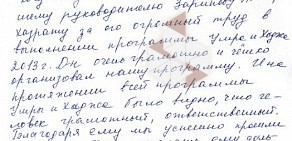 шему руководителю Зарипову
хазрату за его огромный труд в
выполнении программы Умра и Хаджа
2013г. Он очень грамотно и чётко
организовал нашу программу. И на
протяжении всей программы
Умры и Хаджа было видно, что че-
ловек грамотный, ответственный.
Благодаря ему мы успешно прошли